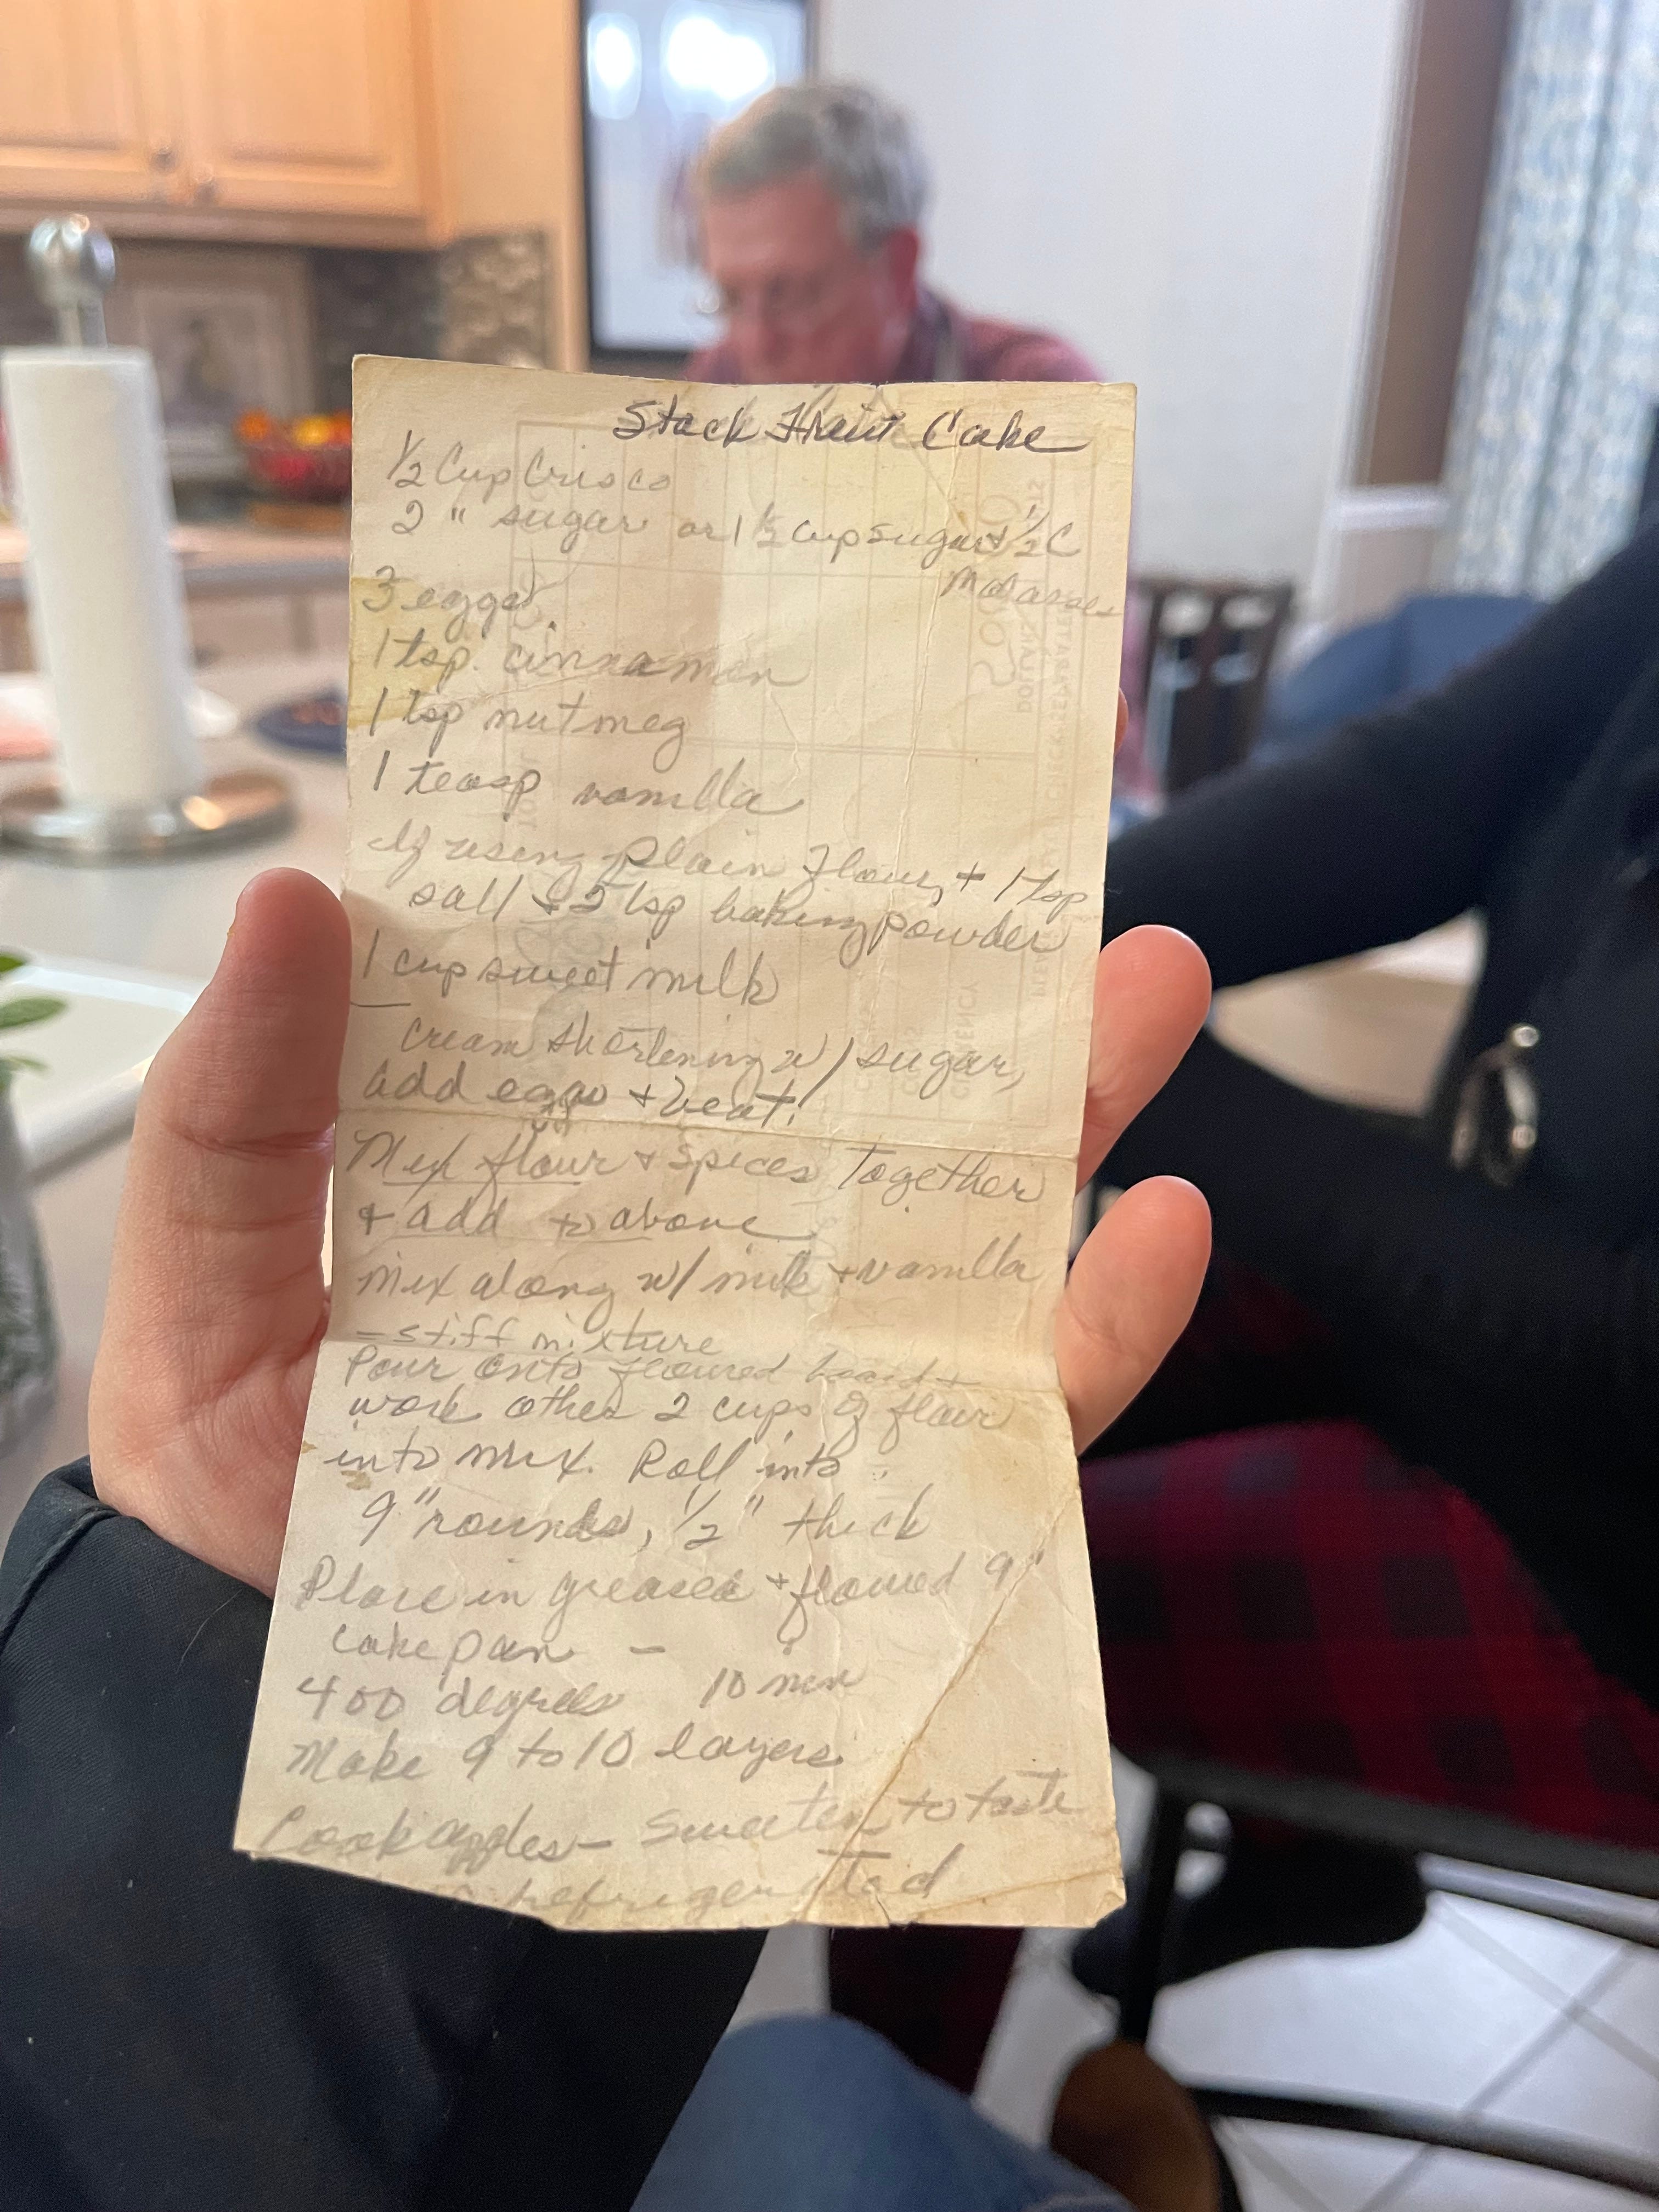 Stack Fruit Cake
1/2 Cup Crisco
2 " sugar or 1 1/2 cup sugar + 1/2 C
Molasses
3 eggs
1 tsp. cinnamon
1 tsp nutmeg
1 teasp vanilla
If using plain flour, + 1 tsp
salt + 2 tsp baking powder
1 cup sweet milk
cream shortening w/ sugar,
add eggs + beat.
Mix flour + spices together
+ add to above
Mix along w/ milk + vanilla
- stiff mixture
Pour onto floured board +
work other 2 cups of flour
into mix. Roll into
9" rounds, 1/2" thick
Place in greased + floured 9"
cake pan -
400 degrees 10 min
Make 9 to 10 layers
Cook apples - sweeten to taste
refrigerated
DOLLARS
CURRENCY